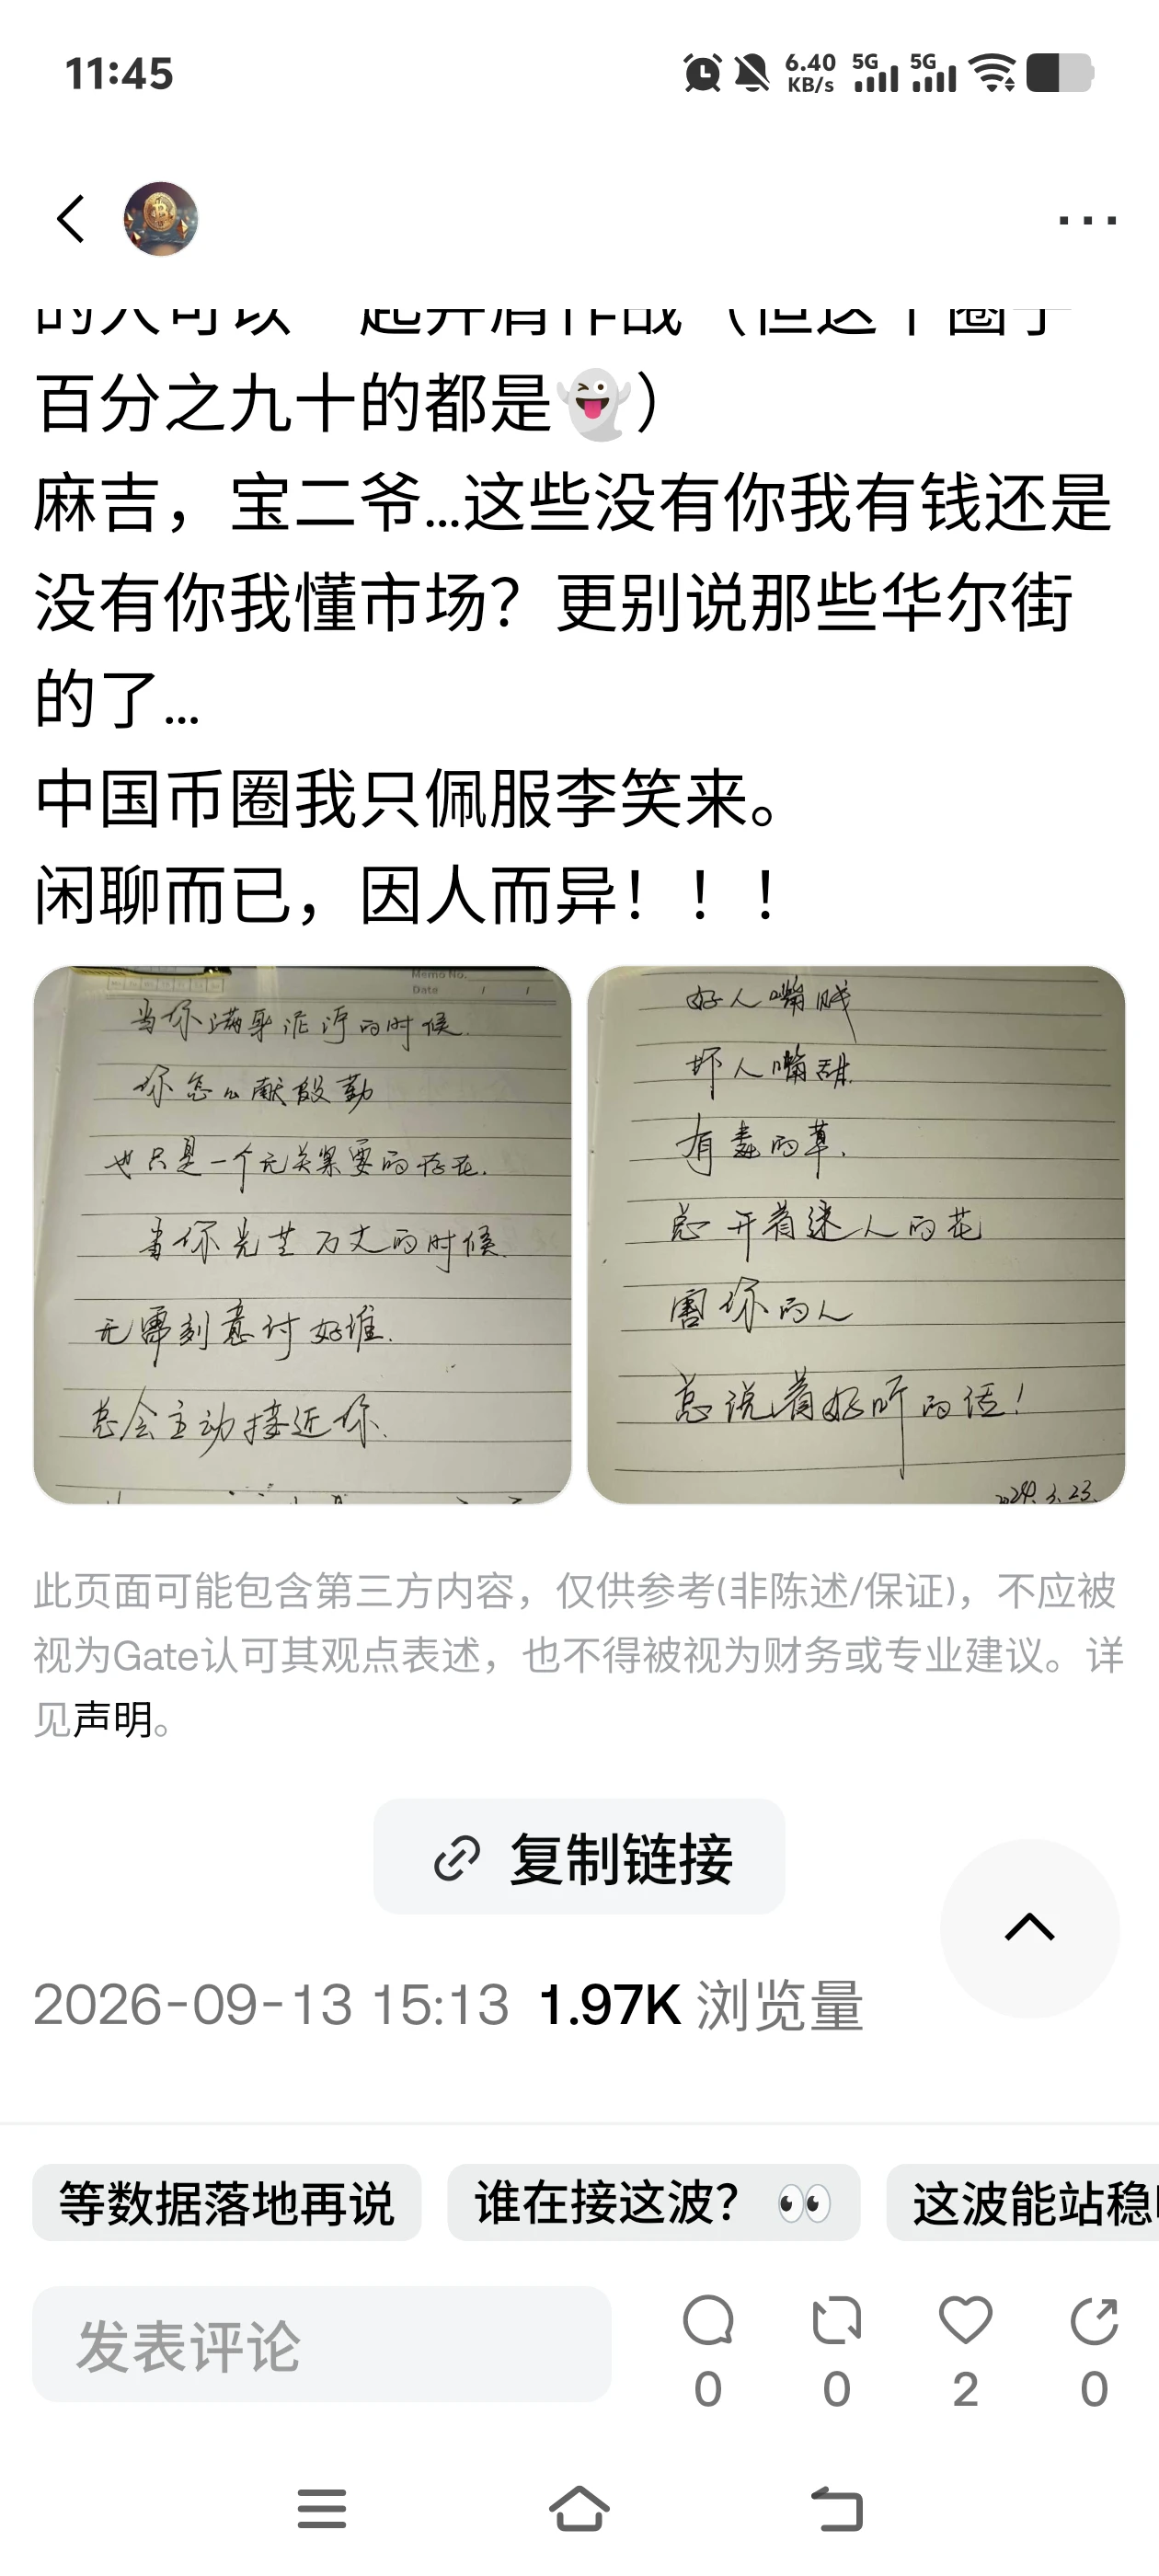 11:45
6.40
KB/s
5G
5G
的人可以一起并肩作战（但这个圈子
百分之九十的都是👻）
麻吉，宝二爷...这些没有你我有钱还是
没有你我懂市场？更别说那些华尔街
的了...
中国币圈我只佩服李笑来。
闲聊而已，因人而异！！！
Memo No.
Date / /
当你满身泥泞的时候.
你怎么献殷勤
也只是一个无关紧要的存在.
当你光芒万丈的时候.
无需刻意讨好谁.
总会主动接近你.
好人嘴贱
坏人嘴甜.
有毒的草.
总开着迷人的花
害你的人
总说着好听的话！
2024.3.23.
此页面可能包含第三方内容，仅供参考(非陈述/保证)，不应被
视为Gate认可其观点表述，也不得被视为财务或专业建议。详
见声明。
复制链接
2026-09-13 15:13 1.97K 浏览量
等数据落地再说
谁在接这波？ 👀
这波能站稳
发表评论
0
0
2
0